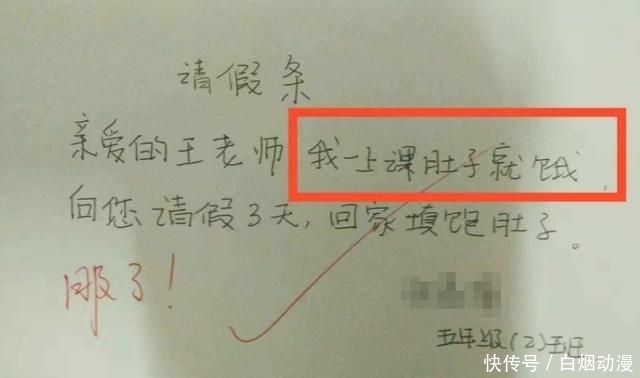 请假条
亲爱的王老师,我一上课肚子就饿,
向您请假3天,回家填饱肚子。
服了!
五年级(2)班
快传号/白烟动漫